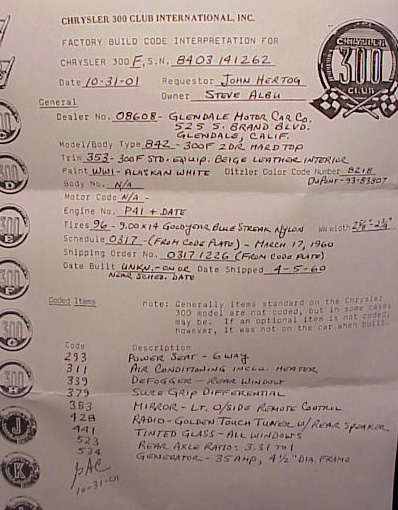 CHRYSLER 300 CLUB INTERNATIONAL, INC.
FACTORY BUILD CODE INTERPRETATION FOR
CHRYSLER 300 F, S.N. 8403141262
CHRYSLER
300
CLUB
Date 10-31-01 Requestor JOHN HERTOG
Owner STEVE ALBU
General
Dealer No. 08608 - GLENDALE MOTOR CAR CO.
525 S. BRAND BLVD.
GLENDALE, CALIF.
Model/Body Type 842 - 300F 2DR HARDTOP
Trim 353 - 300F STD. EQUIP. BEIGE LEATHER INTERIOR
Paint WW1 - ALASKAN WHITE Ditzler Color Code Number 8218
DUPONT-93-83807
Body No. N/A
Motor Code N/A -
Engine No. P41 + DATE
Tires 96 - 9.00 x 14 GOODYEAR BLUE STREAK NYLON WW width
Schedule 0317 - (FROM CODE PLATE) - MARCH 17, 1960
Shipping Order No. 0317 1226 (FROM CODE PLATE)
Date Built UNKN. - ON OR Date Shipped 4-5-60
NEAR SCHED. DATE
Coded Items
note: Generally items standard on the Chrysler
300 model are not coded, but in some cases
may be. If an optional item is not coded,
however, it was not on the car when built.
Code Description
293 POWER SEAT - 6 WAY
311 AIR CONDITIONING INCLU. HEATER
339 DEFOGGER - REAR WINDOW
379 SURE GRIP DIFFERENTIAL
383 MIRROR - LT. O/SIDE REMOTE CONTROL
428 RADIO - GOLDEN TOUCH TUNER W/REAR SPEAKER
441 TINTED GLASS - ALL WINDOWS
523 REAR AXLE RATIO: 3.31 TO 1
534 GENERATOR - 35 AMP, 4 1/2" DIA. FRAME
10-31-01
300
J
K